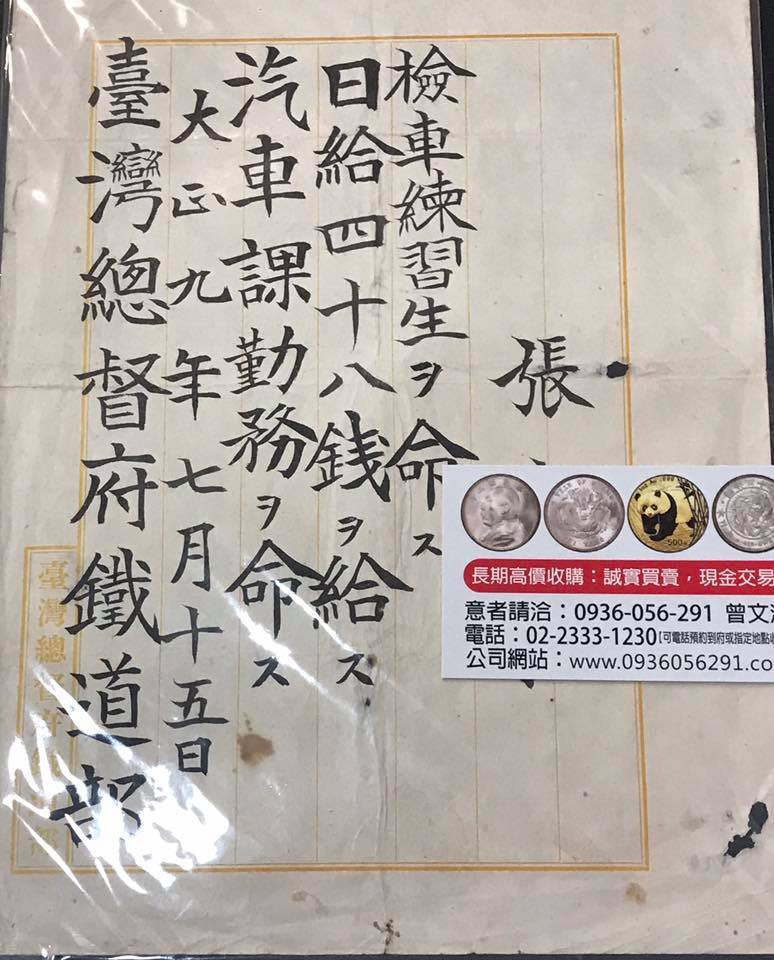 張
檢車練習生ヲ命ス
日給四十八銭ヲ給ス
汽車課勤務ヲ命ス
大正九年七月十五日
臺灣總督府鐵道部
臺灣總督府鐵道部
500
長期高價收購：誠實買賣，現金交易
意者請洽：0936-056-291 曾文
電話：02-2333-1230【可電話預約到府或指定地點收
公司網站：www.0936056291.co